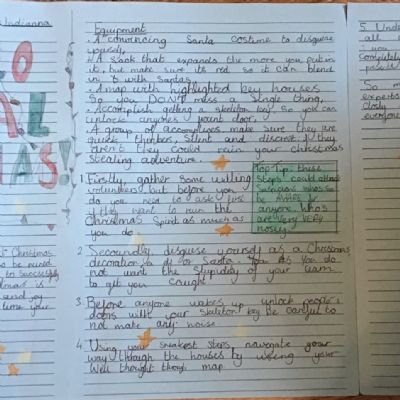 Undianna
O
AL
MAS!
Christmas
to be ruined
to successfully
send joy
time your
Equipment
. A convincing Santa costume to disguise
yourself,
. A sack that expands the more you put in
it, but make sure its red so it can blend
in to with Santas,
. A map with highlighted key houses
So you DONT miss a single thing,
. Accomplish getting a skeleton key So you can
unlock anyones front door,
. A group of accomplices make sure they are
quick thinkers, Silent and discreet if they
Arent they could ruin your christmas
Stealing adventure.
1. Firstly, gather some willing
volunteers, but before you
do you need to ask Just
if they want to ruin the
Christmas Spirit as much as
you do
Top Tip: these
Steps could attract
Suspicions so
be AWARE for
anyone whos
are very VERY
nosey
2. Secoundly, disguise yourself as a Christmas
decoration, a elf or Santa. You do
not want the Stupidity of your team
to get you caught
3. Before anyone wakes up unlock people's
doors with your skeleton key be careful to
not make any noise
4. Using your sneakest Steps, navegate your
way through the houses by useing your
Well thought though map
5. Und
all
you
completely
possi
So m
experts
everyone